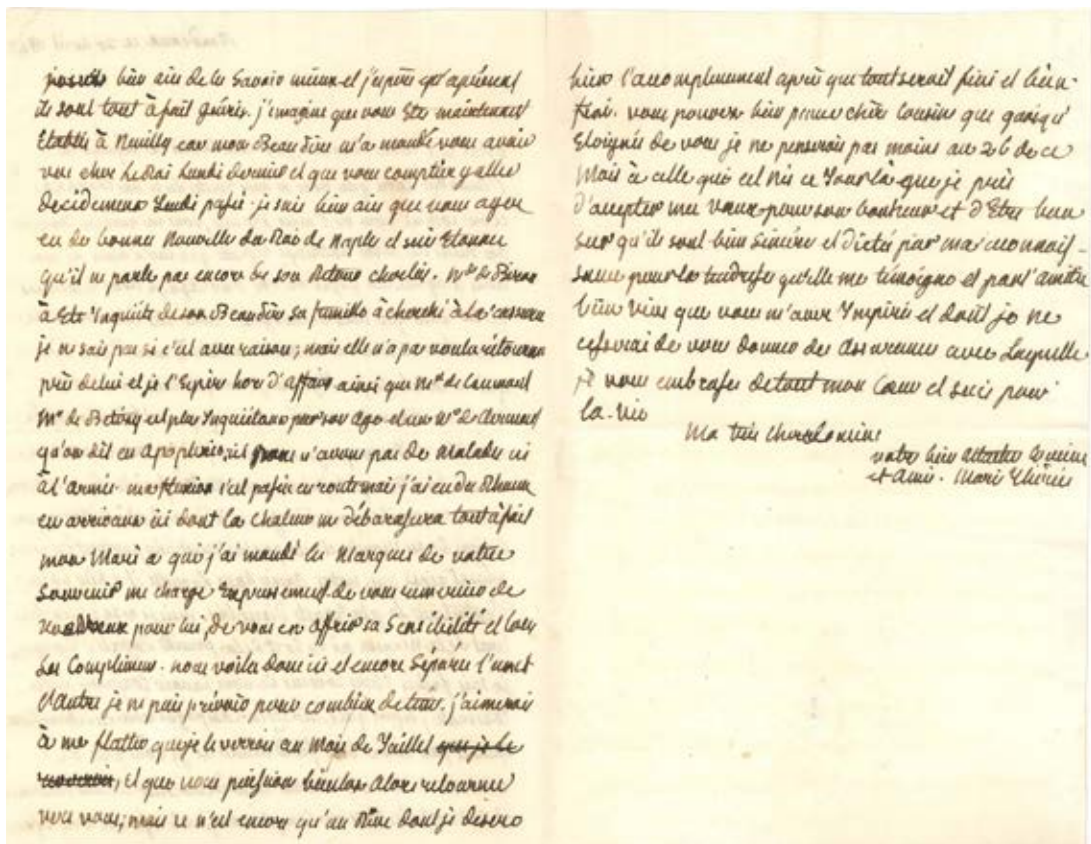 bien aise de les savoir mieux et j'espère qu'à présent
ils sont tout à fait guéris. j'imagine que vous Ete maintenant
Etablis à Neuilly car mon Beau frère m'a mandé vous avoir
vue chez le Roi Lundi dernier et que vous comptiez y aller
decidement Jeudi passé. je suis bien aise que vous ayez
eu de bonnes Nouvelles du Roi de Naples et suis Etonnée
qu'il ne parle pas encore de son Retour chez lui. Mde de
à Eté Inquiète de son Beau frère sa famille à cherché à la
je ne sais pas si c'est avec raison; mais elle n'a pas voulu retourner
près de lui et je l'Espère hors d'affaire ainsi que Mr de
Mr de est plus Inquiétant par son Age et un Mr de
qu'on dit en Apoplexie, ici nous n'avons pas de Malades ni
à l'armée. ma s'est passée en route mais j'ai eu du Rhume
en arrivant ici dont la chaleur me débarassera tout à fait
mon Mari a qui j'ai mandé les Marques de votre
Souvenir me charge Expressement de vous remercier de
vos Voeux pour lui, de vous en offrir sa Sensibilité et tous
Ses Complimens. nous voila donc ici et encore Séparés l'un et
l'Autre je ne puis prévoir pour combien de tems. j'aimerois
à me flatter que je le verrois au Mois de Juillet que je le
, et que nous puissions bientôt alors retourner
vers vous; mais ce n'est encore qu'un Rêve dont je désire
bien l'accomplissement après que tout seroit fini et bien
fini. vous pouvez bien penser chère Cousine que quoiqu'
Eloignée de vous je ne penserois pas moins au 26 de ce
Mois à celle qui est née ce Jour là que je prie
d'accepter mes Voeux pour son bonheur et d'Etre bien
Sur qu'ils sont bien Sincères et dictés par ma reconnois-
sance pour la tendresse qu'elle me témoigne et par l'amitié
bien vive que vous m'avez Inspirée et dont je ne
cesserai de vous donner des assurances avec Laquelle
je vous embrasse de tout mon Coeur et suis pour
la vie
Ma très chere Cousine
votre bien attachée Cousine
et Amie. Marie Thérèse